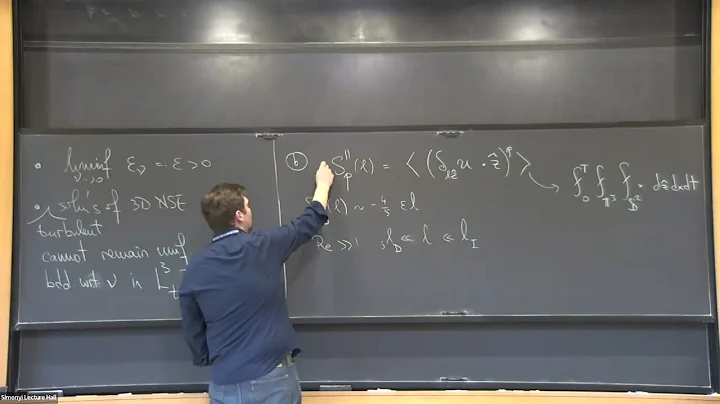 • liminf ε_ν = ε > 0
ν→0
• sol's of 3D NSE
turbulent
cannot remain unif
bdd wrt ν in L³
ⓑ S_p^∥(ℓ) = ⟨(δ_{ℓẑ} u · ẑ)^p⟩ → ∫_0^T ∫_{𝕋³} ∫_{𝕊²} · dẑ dx dt
(ℓ) ~ -4/5 εℓ
Re ≫ 1 ; ℓ_D ≪ ℓ ≪ ℓ_I
Simonyi Lecture Hall